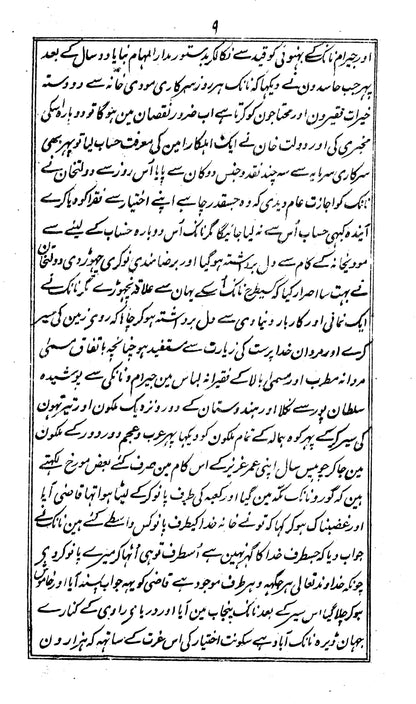 ۹
اور جیرام نانک کے بہنوئی کو قید سے نکالکر بدستور مدار المہام بنایا دو سال کے بعد
پہر جب حاسدون نے دیکہا کہ نانک ہر روز سرکاری مودی خانہ سے دو دستہ
خیرات فقیرون اور محتاجون کو کرتا ہے اب ضرور نقصان مین ہوگا تو دوبارہ اسکی
مخبری کی اور دولت خان نے ایک اہلکار امین کی معرفت حساب لیا تو پہر بہی
سرکاری سرمایہ سے سہ چند نقد و جنس دوکان سے پایا اُس روز سے دولتخان نے
نانک کو اجازت عام دیدی کہ وہ جسقدر چاہے اپنے اختیار سے فقرا کو دیا کرے
آیندہ کبہی حساب اُس سے نہ لیا جائیگا مگر نانک اُس دوبارہ حساب کے لینے سے
مودیخانہ کے کام سے دل برداشتہ ہوگیا اور برضامندی نوکری چہوڑ دی دولتخان
نے بہت سا اصرار کیا کہ کسیطرح نانک اُسکے یہان سے علاقہ نچہوڑے مگر نانک نے
ایک نمانی اور کار بار دنیاوی سے دل برداشتہ ہوکر چاہا کہ روی زمین کی سیر
کرے اور مردان خدا پرست کی زیارت سے مستفید ہو چنانچہ باتفاق مسمی
مردانہ مطرب اور مسمی بالا کے فقیرانہ لباس مین جیرام و نانکی سے پوشیدہ
سلطان پور سے نکلا اور ہندوستان کے دور و نزدیک ملکون اور تیرتہون
کی سیر کرکے پہر کوہ ہمالہ کے تمام ملکون کو دیکہا پہر عرب و عجم دور دور کے ملکون
مین جاکر چوبیس سال اپنی عمر عزیز کے اس کام مین صرف کئے بعض مورخ لکہتے
ہین کہ گورو نانک مکہ مین گیا اور کعبہ کی طرف پانو کرکے لیٹا ہوا تہا قاضی آیا
اور غضبناک ہوکر کہا کہ تونے خانہ خدا کیطرف پانو کس واسطے کئے ہین نانک نے
جواب دیا کہ جسطرف خدا کا گہر نہین ہے اُسطرف تو ہی اُٹہا کر میرے پانو کر دے
چونکہ خداوند تعالی ہر جگہہ و ہر طرف موجود ہے قاضی کو یہہ جواب پسند آیا اور خاموش
ہوکر چلا گیا اس سیر کے بعد نانک پنجاب مین آیا اور دریای راوی کے کنارے
جہان ڈیرہ نانک آباد ہے سکونت اختیار کی اس عزت کے ساتہہ کہ ہزارون